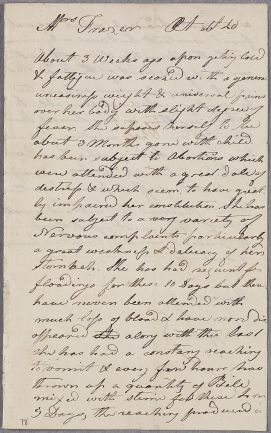 Mrs Frazer Æt 40
About 3 Weeks ago upon geting cold
& fatigue was seized with a general
uneasiness weight & universal pains
over her body with slight degree of
fever she supposes herself to be
about 3 Months gone with child
has been subject to Abortions which
were attended with a great deale of
distress & which seem to have great
ly impaired her constitution She has
been subject to a very variety of
Nervous complaints particularly
a great weakness & delicacy of her
Stomach. She has had frequent
floodings for these 10 Days but these
have never been attended with
much loss of blood & have now dis
appeared along with this last
she has had a constant reaching
to vomit & every few hours has
thrown up a quantity of Bile
mixed with slime for these
3 Days, the reaching produced a